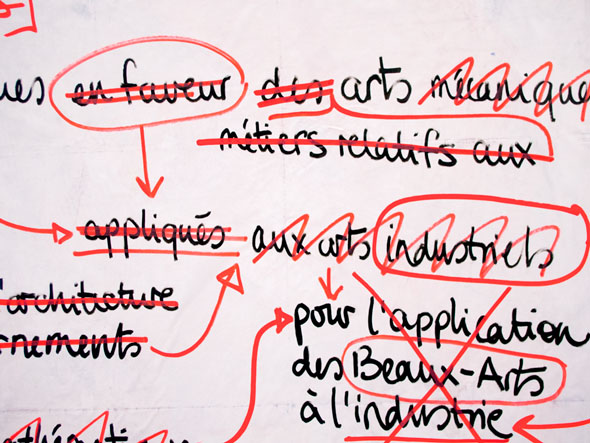 ues en faveur des arts mécanique
métiers relatifs aux
appliqués aux arts industriels
l'architecture
rnements
pour l'application
des Beaux-Arts
à l'industrie